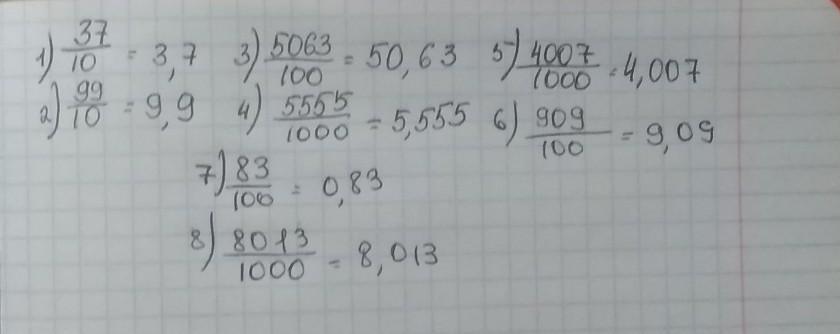 1) 37/10 = 3,7 3) 5063/100 = 50,63 5) 4007/1000 = 4,007
2) 99/10 = 9,9 4) 5555/1000 = 5,555 6) 909/100 = 9,09
7) 83/100 = 0,83
8) 8013/1000 = 8,013